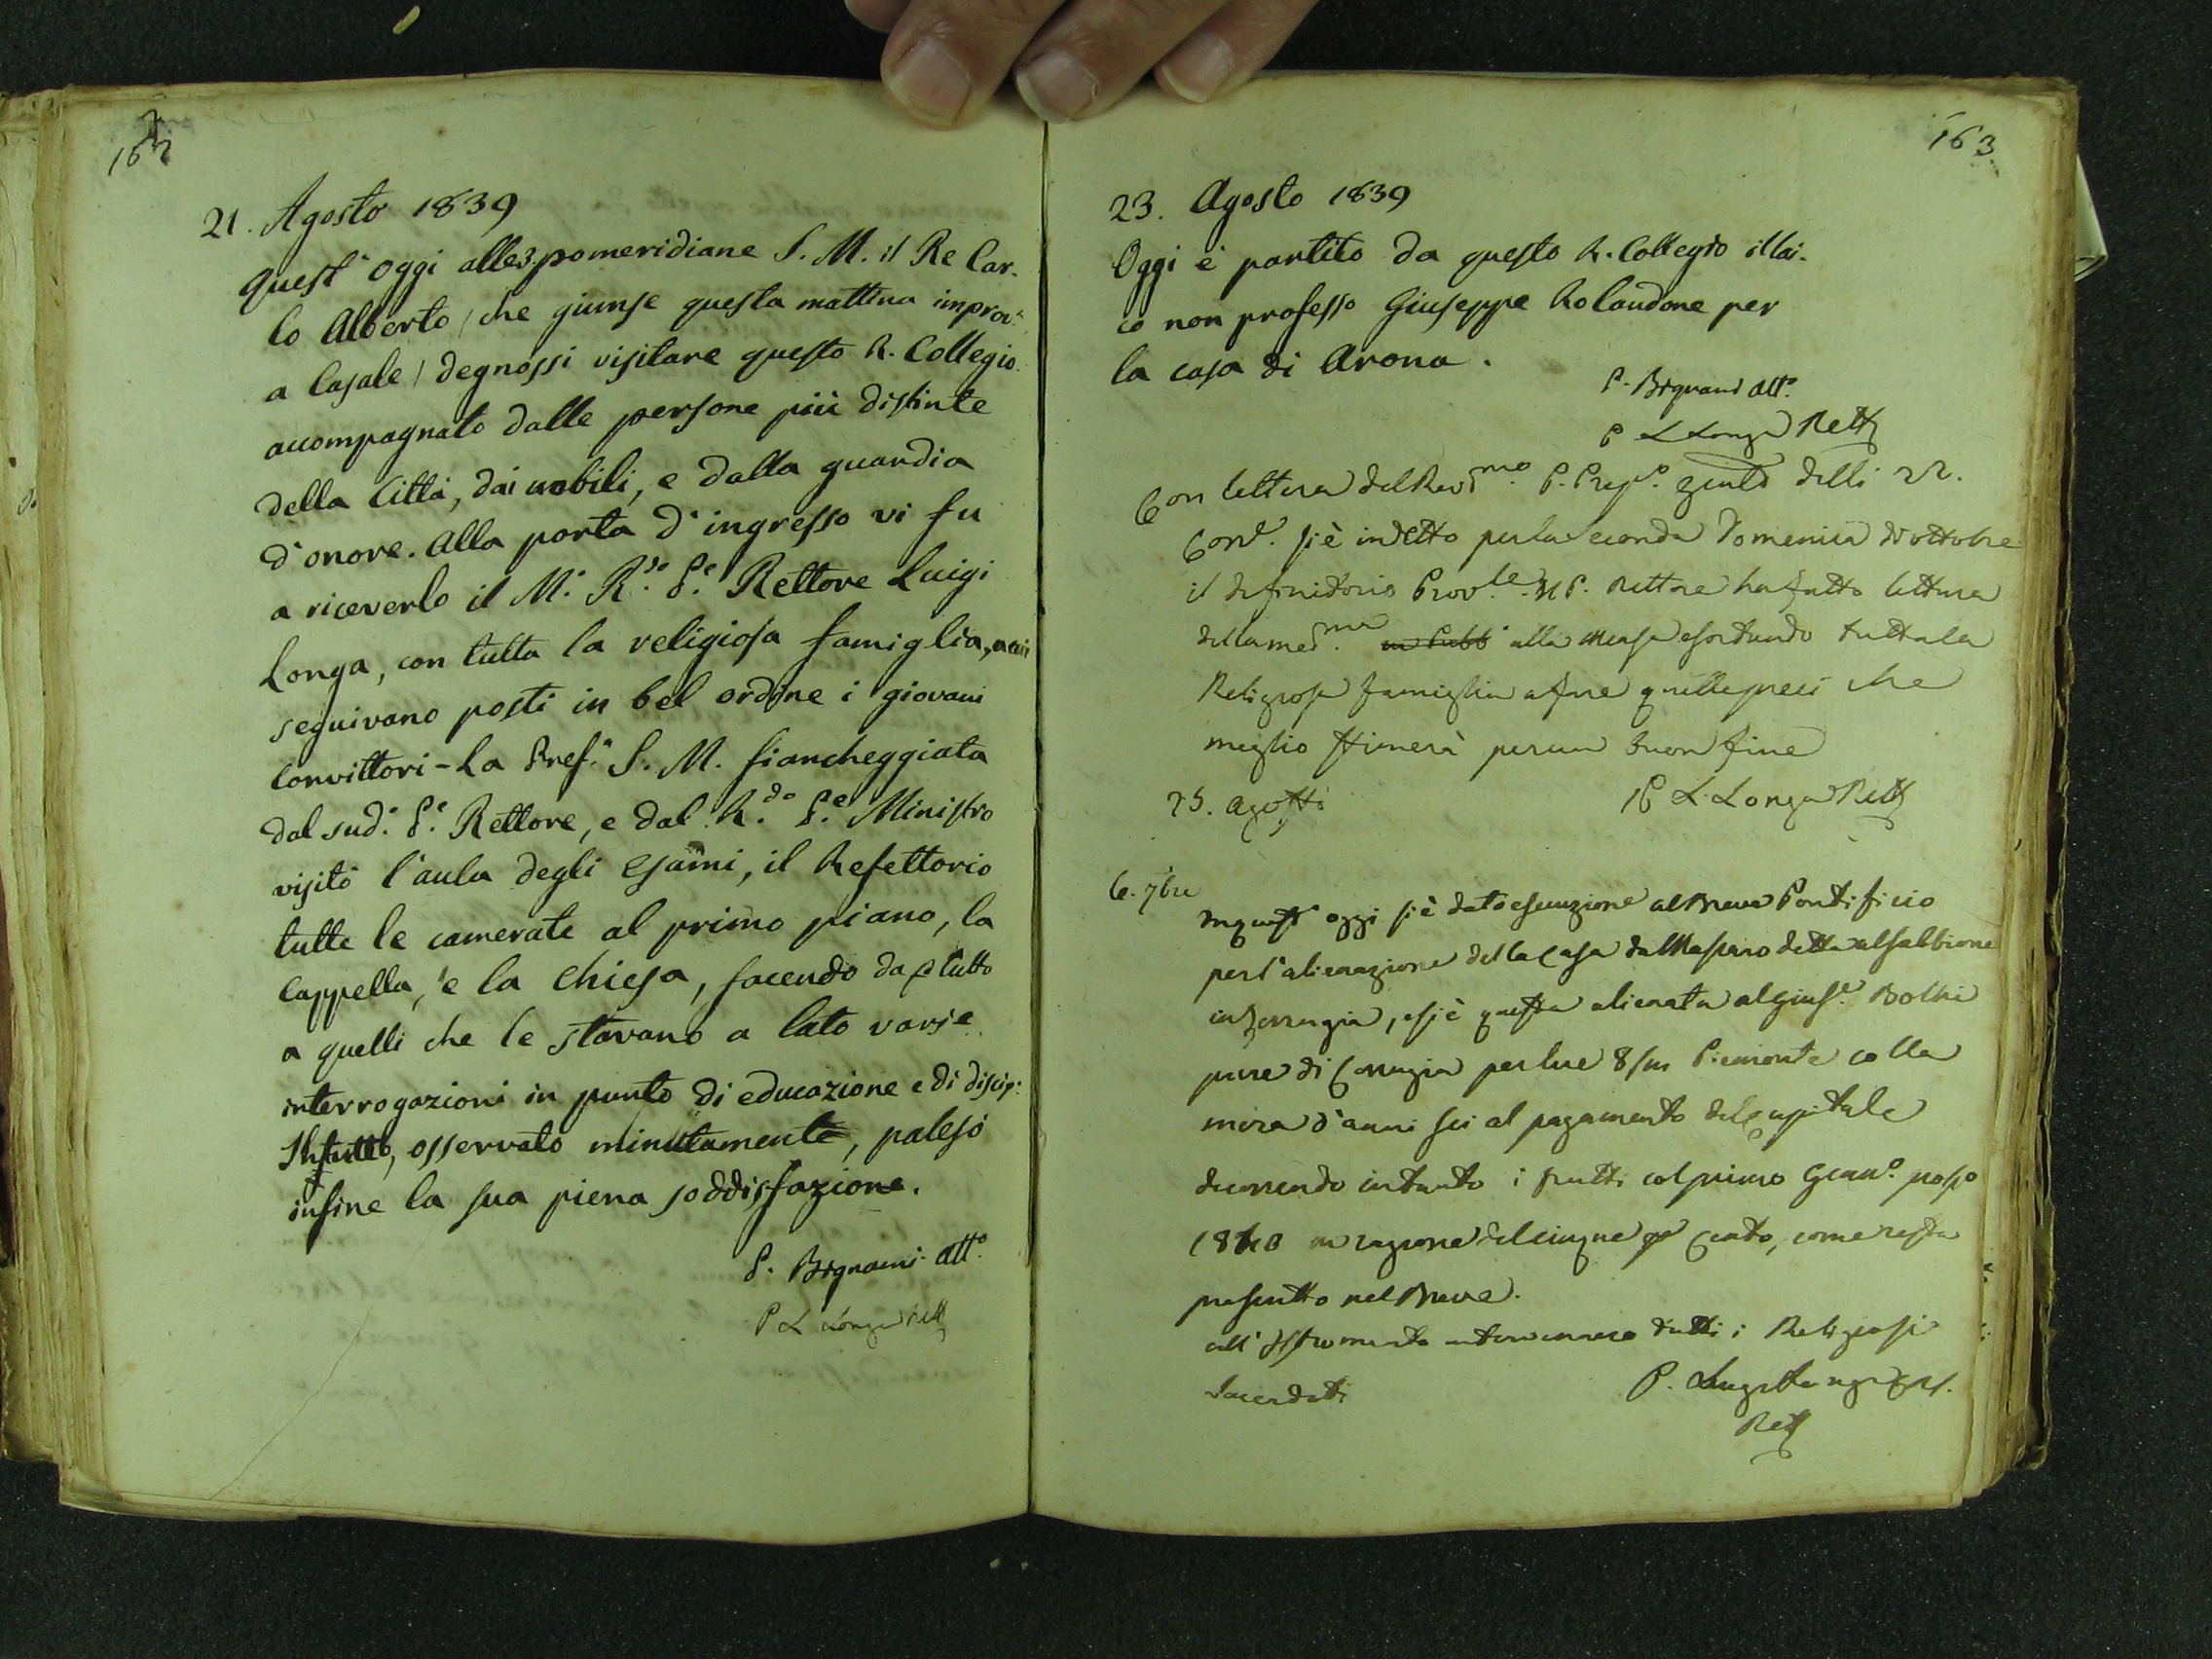 162
21. Agosto 1839
Quest' oggi alle 3. pomeridiane S. M. il Re Car-
lo Alberto (che giunse questa mattina improv.e
a Casale) degnossi visitare questo R. Collegio
accompagnato dalle persone più distinte
della Città, dai nobili, e dalla guardia
d'onore. Alla porta d'ingresso vi fu
a riceverlo il M.o R.do P.e Rettore Luigi
Longa, con tutta la religiosa famiglia, a cui
seguivano posti in bel ordine i giovani
Convittori - La Pref.a S. M. fiancheggiata
dal sud.o P.e Rettore, e dal R.do P.e Ministro
visitò l'aula degli esami, il Refettorio
tutte le camerate al primo piano, la
Cappella, e la Chiesa, facendo da p tutto
a quelli che le stavano a lato varie
interrogazioni in punto di educazione e di discip:
Il tutto, osservato minutamente, palesò
infine la sua piena soddisfazione.
P. Bignami Att.o
P L Longa Rett
163.
23. Agosto 1839
Oggi è partito da questo R. Collegio il lai-
co non professo Giuseppe Rolandone per
la casa di Arona.
P. Bignami Att.o
P L Longa Rett
Con lettera del Rev.mo P. Prep.o delli 22.
Corr.e si è indetto per la seconda Domenica d'ottobre
il definitorio Prov.le. Il P. Rettore ha fatto lettura
della med.ma alla mensa esortando tutta la
Religiosa famiglia a fare quelle preci che
meglio stimerà per un buon fine
25. Agosto
P L. Longa Rett
6. 7bre
In quest' oggi si è dato esecuzione al Breve Pontificio
per l'alienazione della Casa da Massaro detta al sabbione
in , e si è questa alienata al Gius.e Bolli
pure di per lire 8/m Piemonte colla
mora d'anni sei al pagamento del capitale
decorrendo intanto i frutti col primo Genn.o
1840 in ragione del cinque p cento, come resta
prescritto nel Breve.
all' Istromento intervennero tutti i Religiosi
Sacerdoti
P. Luigi Longa
Rett